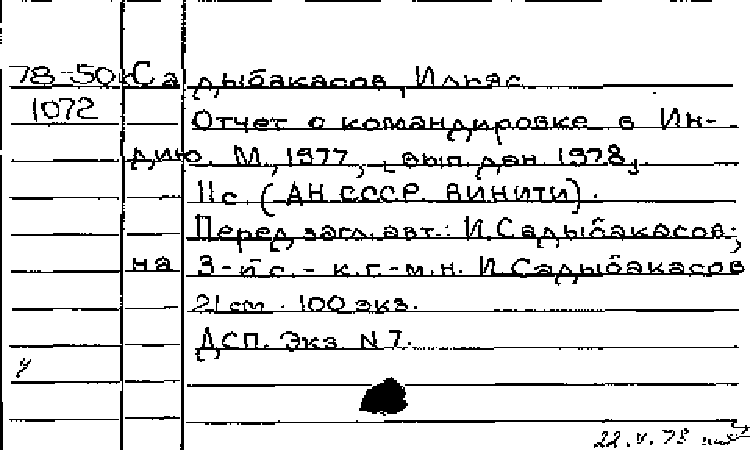 78-50к Садыбакасов, Ильяс
1072
Отчет о командировке в Ин-
дию. М., 1977, [вып. дан. 1978].
11 с. (АН СССР. ВИНИТИ).
Перед загл. авт.: И. Садыбакасов;
на 3-й с. - к.г.-м.н. И. Садыбакасов
21 см. 100 экз.
ДСП. Экз. N 7.
у
22.V.78